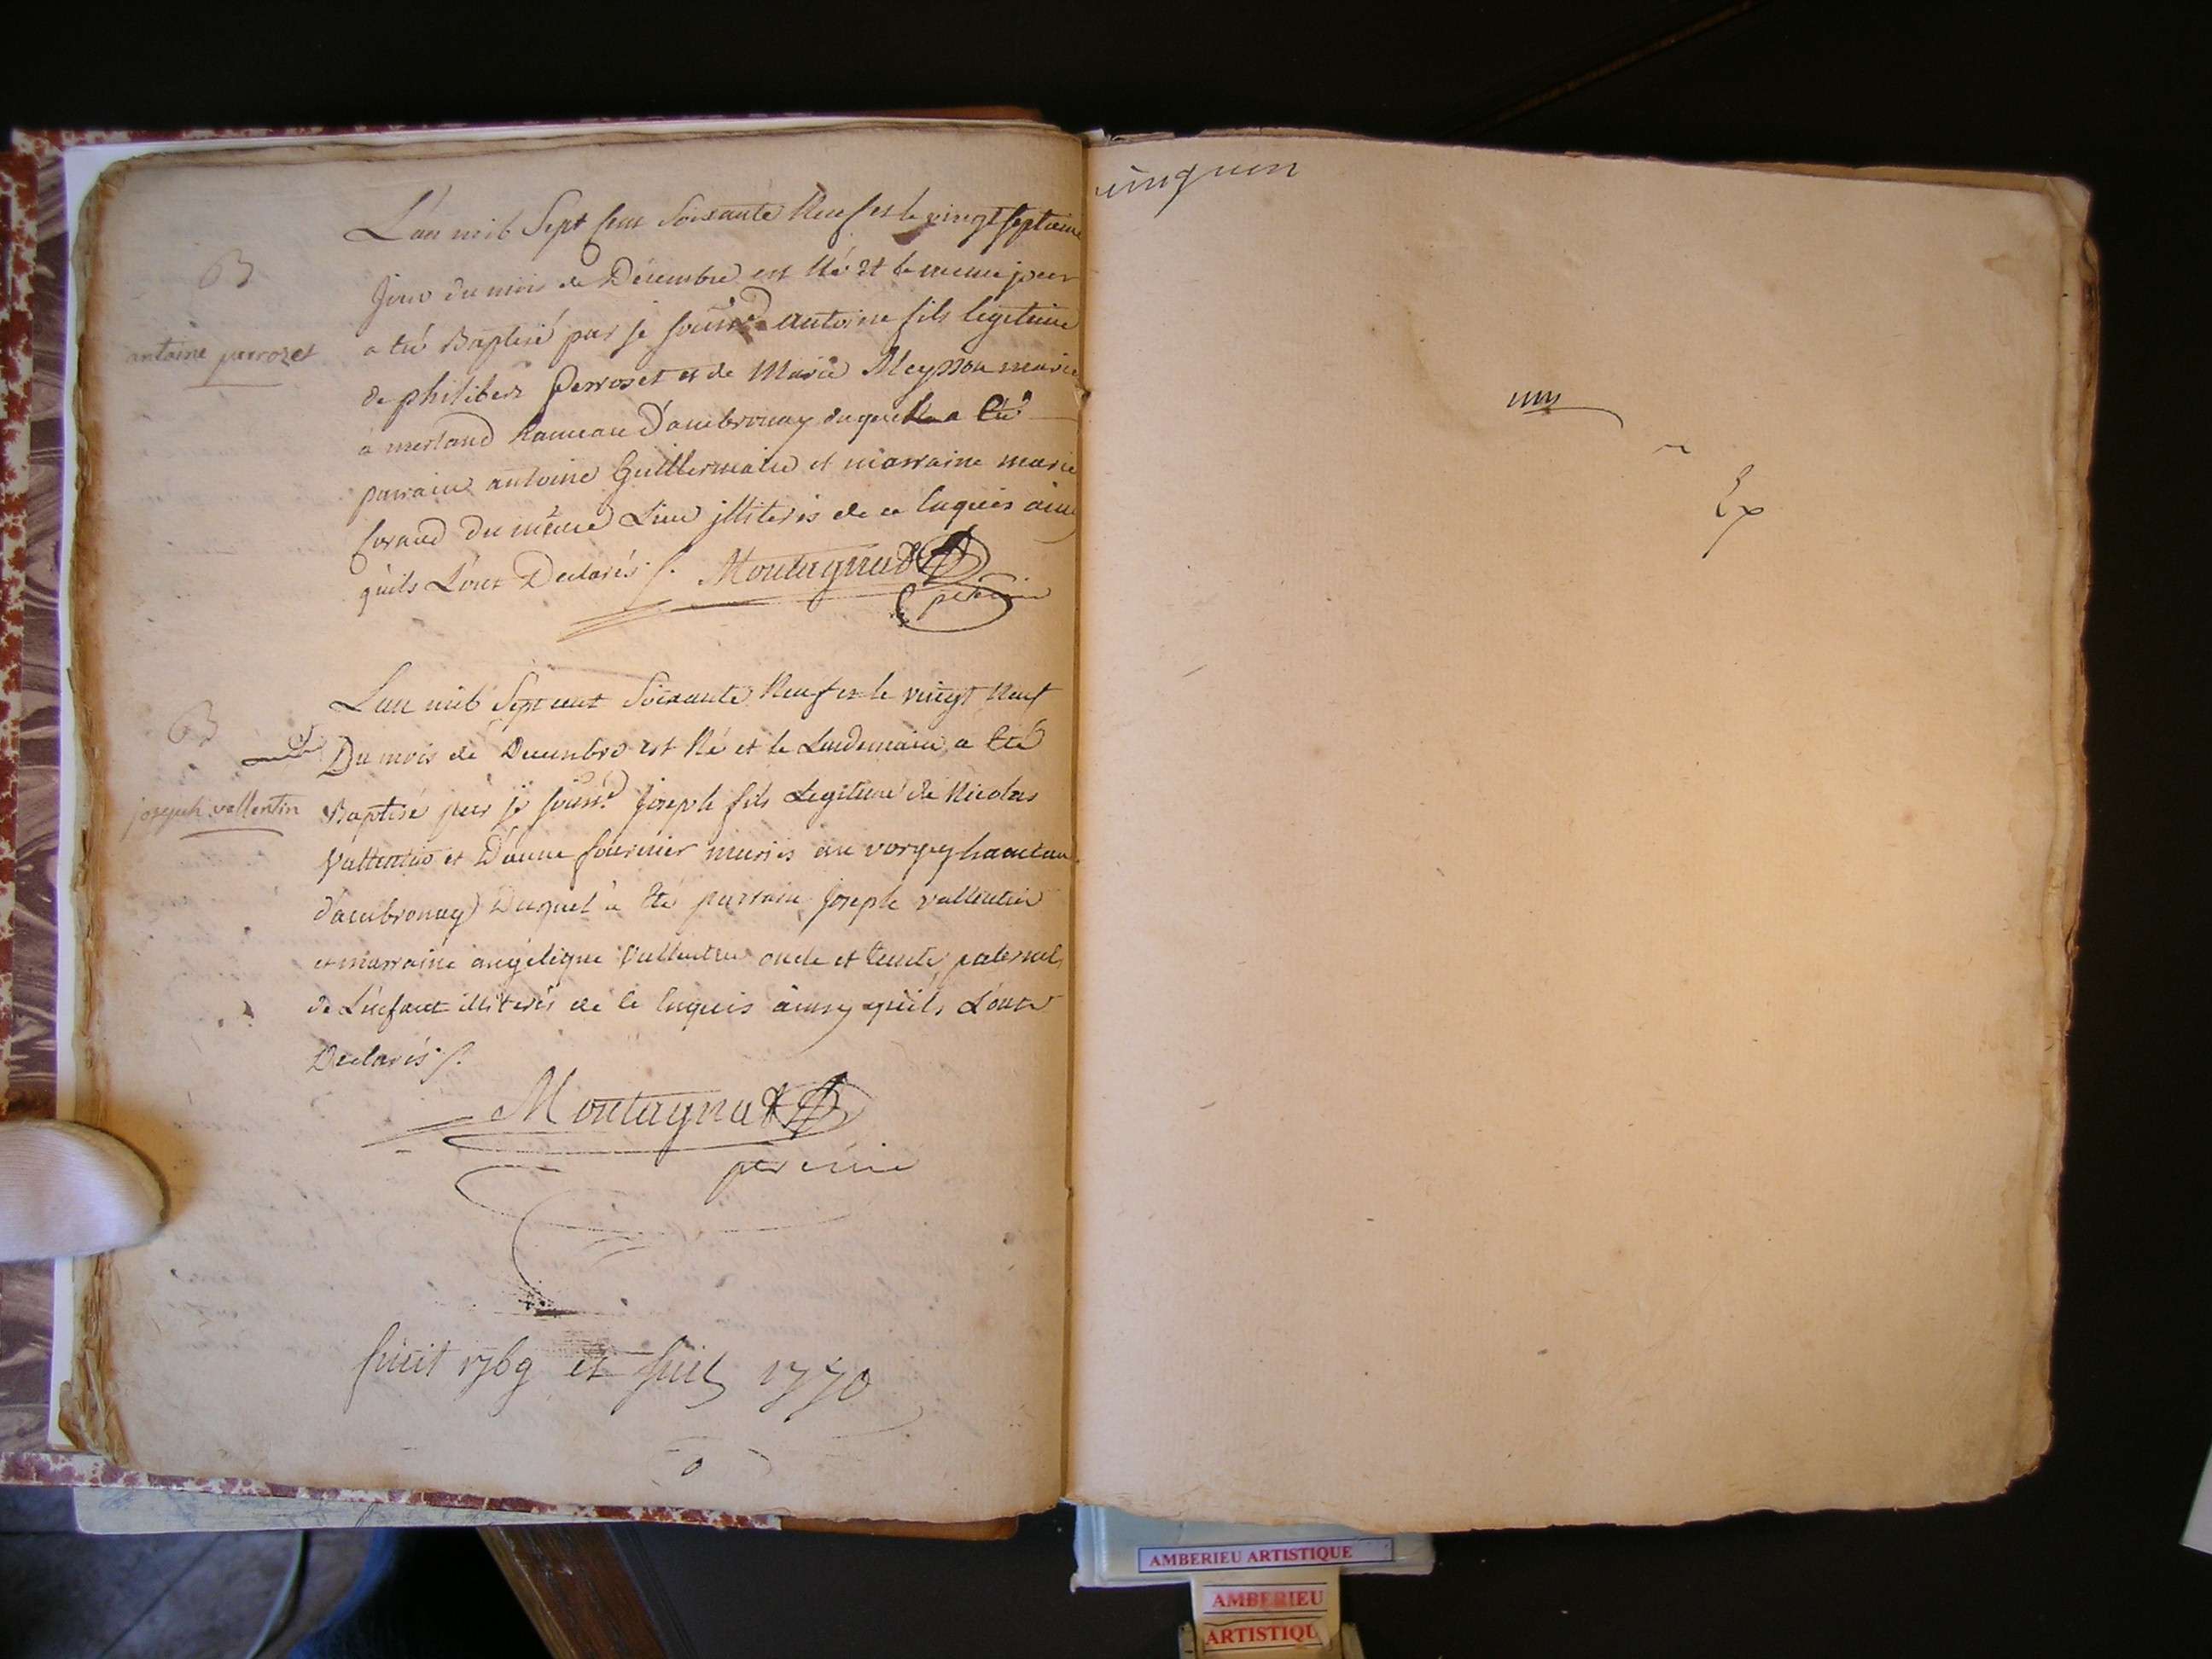 L'an mil Sept Cent Soixante Neuf et le vingt septieme
B
Jour du mois de Decembre est Né et le meme jour
a été Baptisé par je soussé Antoine fils legitime
antoine perrozet
de philibert Perroset et de Marie Meysson mariés
a merland hameau D'ambronay duquel a Eté
parrain antoine Guillermain et marraine marie
du même Lieu illiterés de ce Enquis ainsi
qu'ils L'ont Declarés /. Montagnat
L'an mil Sept cent Soixante Neuf et le vingt Neuf
B
Du mois de Decembre est Né et le Lendemain a Eté
joseph vallentin
Baptisé par je soussé Joseph fils Legitime de Nicolas
Vallentin et D'anne fournier mariés au vorgey hameau
d'ambronay Duquel à Eté parrain Joseph vallentin
et marraine angelique Vallentin oncle et tente paternel
de L'enfant illiterés de ce Enquis ainsy qu'ils L'ont
Declarés /.
Montagnat
finit 1769 et suit 1770
AMBERIEU ARTISTIQUE
AMBERIEU
ARTISTIQU